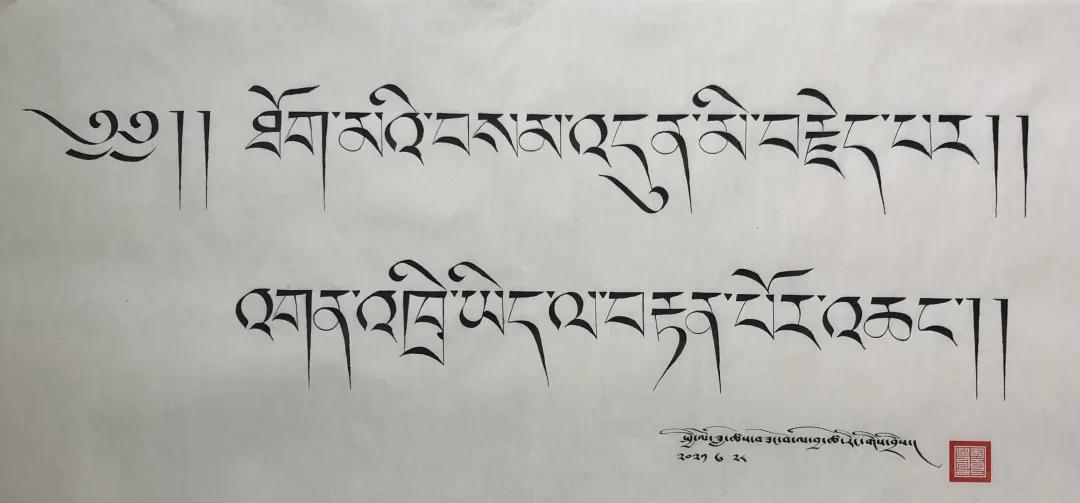 ༄༅།། ཐོག་མའི་བསམ་འདུན་མི་བརྗེད་པར།།
འགན་འཁྲི་ཡིད་ལ་བརྟན་པོར་འཆང་།།
༢༠༢༡ ༦